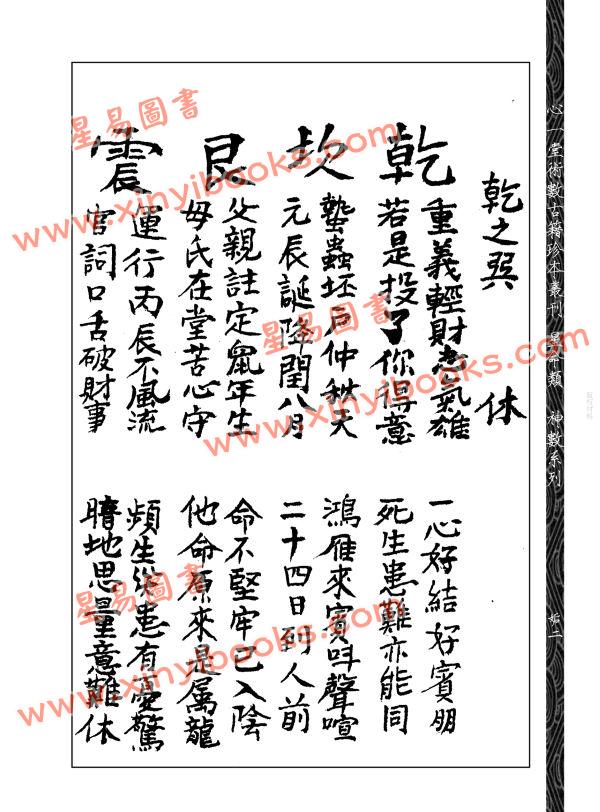 心一堂術數古籍珍本叢刊
神數系列
乾之巽 休
乾
重義輕財志氣雄 一心好結好賓朋
若是投了你得意 死生患難亦能同
坎
蟄蟲坯戶仲秋天 鴻雁來賓呌聲喧
元辰誕降閏八月 二十四日到人前
艮
父親註定鼠年生 命不堅牢已入陰
母氏在堂苦心守 他命原來是属龍
震
運行丙辰不風流 頻生災患有憂驚
官詞口舌破財事 瞔地思量意難休
星易圖書
www.xinyibooks.com
星易圖書
www.xinyibooks.com
星易圖書
www.xinyibooks.com